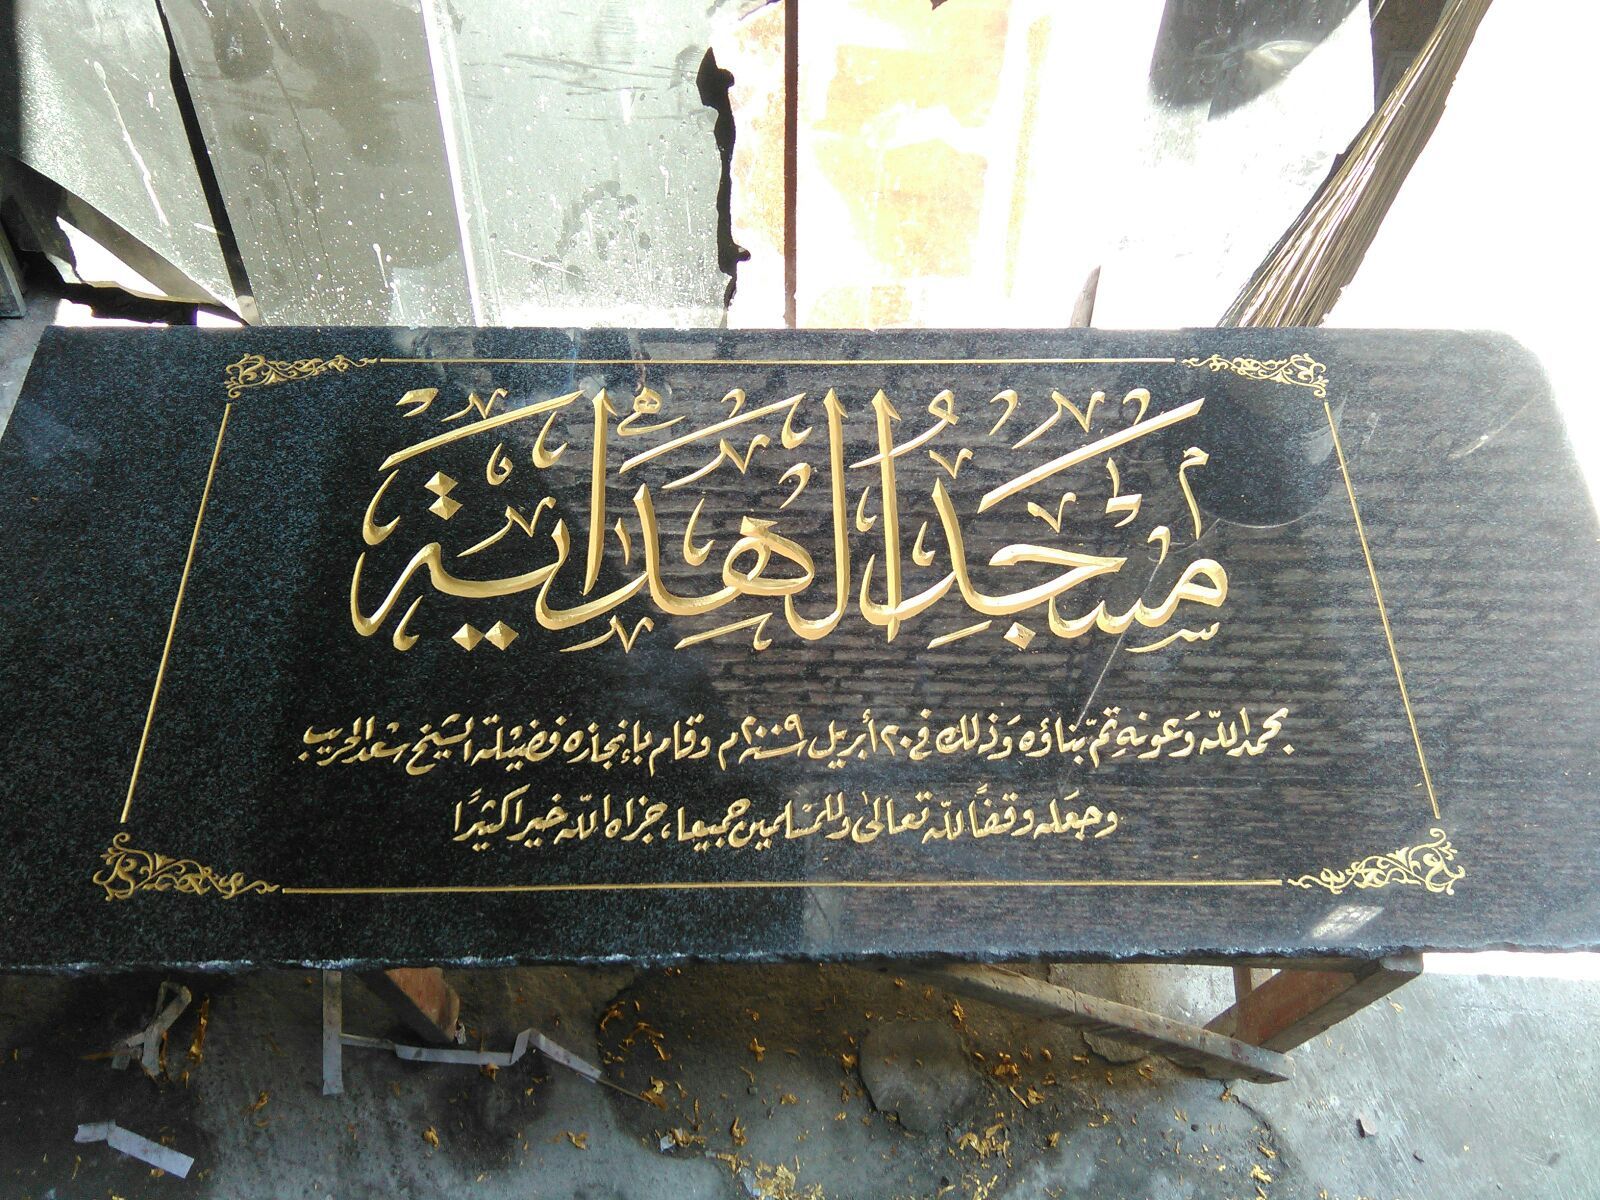 مسجد الهداية
بحمد الله وعونه تمّ بناؤه وذلك في ٢٠ أبريل سنة ٢٠٠٩م وقام بإنجازه فضيلة الشيخ سعد الحريب
وجعله وقفًا لله تعالى وللمسلمين جميعا، جزاه الله خيرا كثيرًا